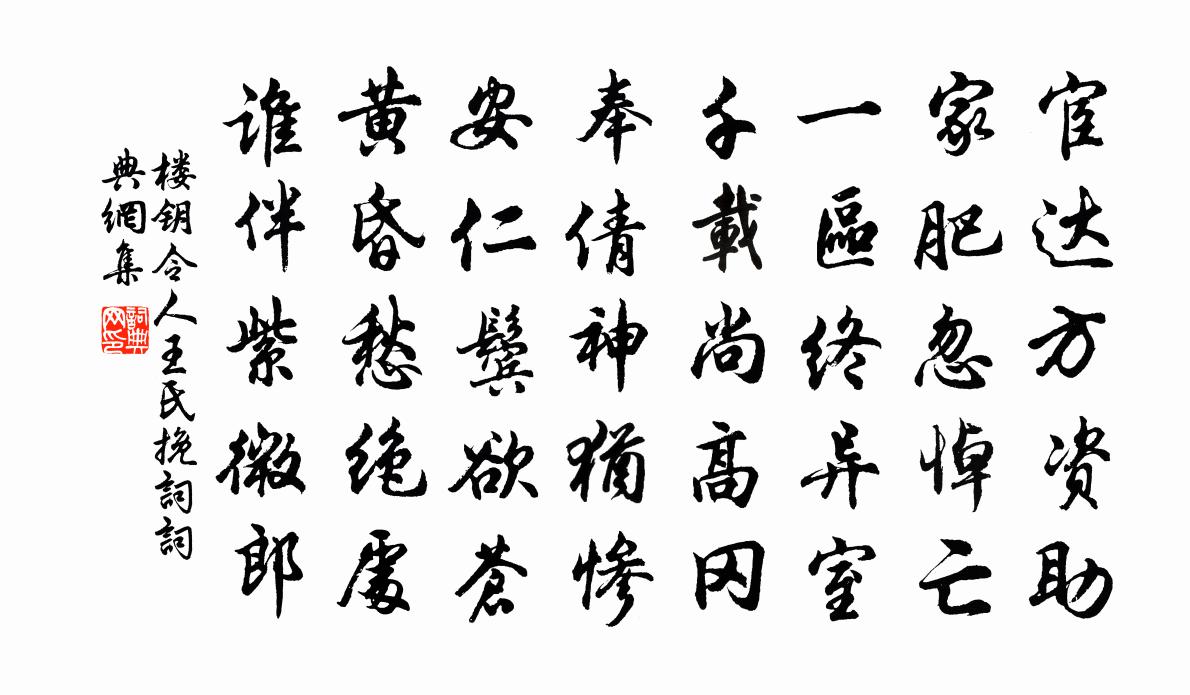 宦达方资助
家肥忽悼亡
一區终异室
千載尚高冈
奉倩神猶惨
安仁鬓欲苍
黄昏愁绝處
谁伴紫微郎
楼钥令人王氏挽詞詞
典網集
詞典网印